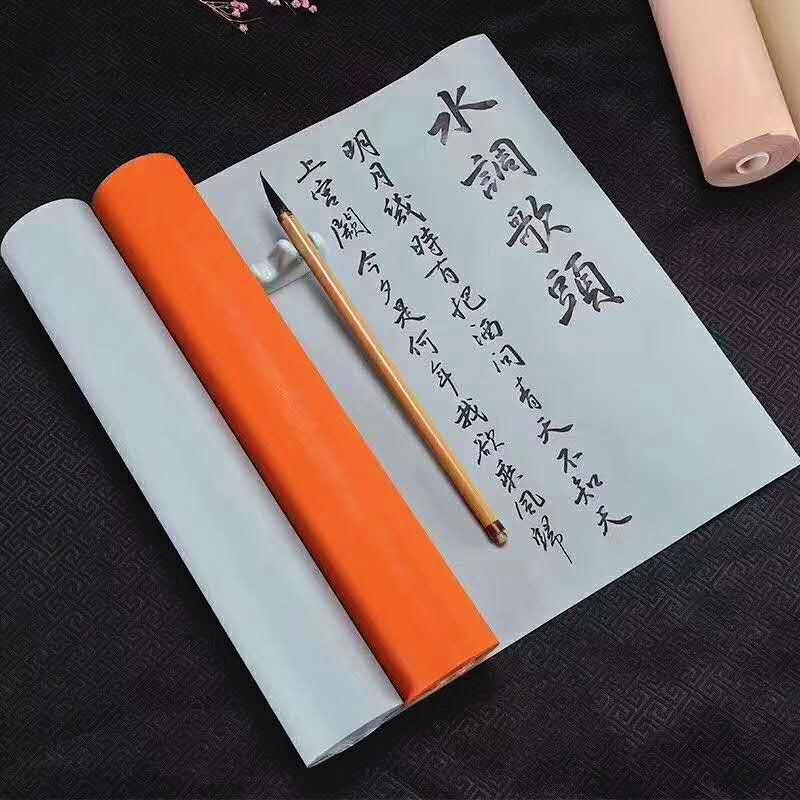 水調歌頭
明月幾時有把酒問青天不知天
上宮闕今夕是何年我欲乘風歸